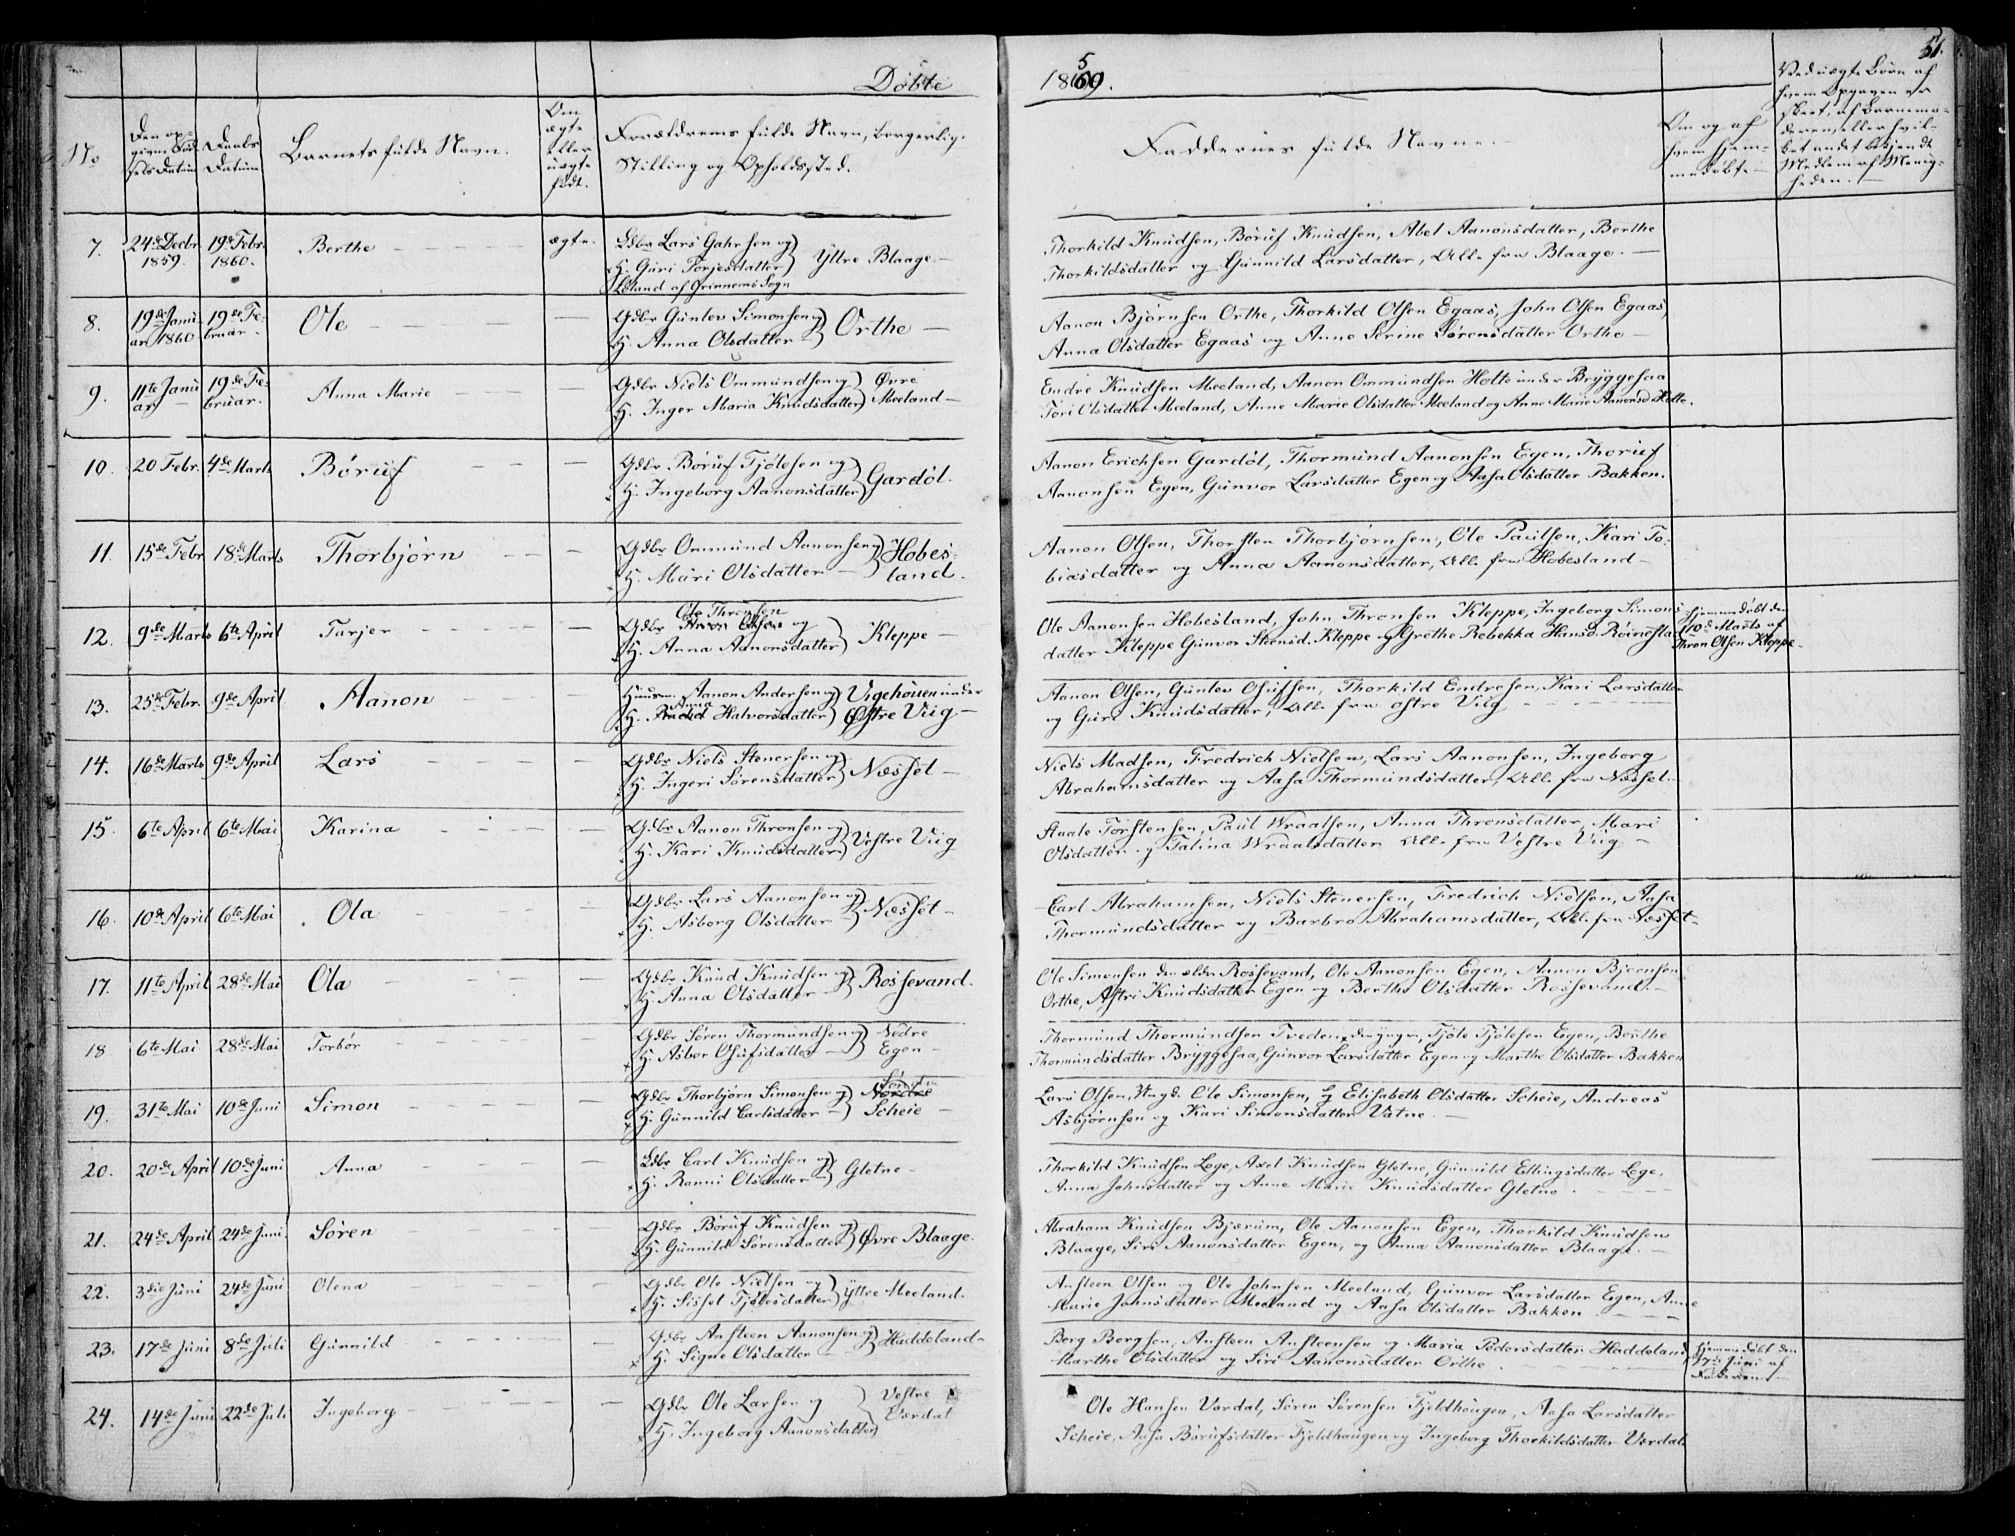 Døbte
1859.
51.
No
Den op-
givne Fød-
sels Datum
Daabs
Datum
Barnets fulde Navn.
Om
ægte
eller
uægte
født.
Forældrenes fulde Navn, borgerlig.
Stilling og Opholdssted.
Faddernes fulde Navne.
Om og af
hvem hjem-
medøbt
Ved uægte Børn af
hvem Opgaven er
skeet, af Barnemo-
deren, eller hvil-
ket andet bekjendt
Medlem af Menig-
heden.
7. 24de Decbr. 1859. 19de Febr. 1860. Berthe ægte. Gdbr Lars Gahrsen og
H. Guri Torjesdatter Yttre Blaage.
Løland af Grinnems Sogn
Thorkild Knudsen, Børuf Knudsen, Abel Aanonsdatter, Berthe
Thorkildsdatter og Gunnild Larsdatter, Alle fra Blaage.
8. 19de Janu- ar 1860 19de Fe- bruar. Ole Gdbr Gunlov Simonsen og
H. Anna Olsdatter Orthe
Aanon Bjørnsen Orthe, Thorkild Olsen Egaas, John Olsen Egaas,
Anna Olsdatter Egaas og Anne Serine Sørensdatter Orthe
9. 11te Janu ar 19de Fe- bruar. Anna Marie Gdbr Niels Ommundsen og Øvre
H. Inger Maria Knudsdatter Meeland
Endre Knudsen Meeland, Aanon Ommundsen Holte under Bryggesaa
Tori Olsdatter Meeland, Anne Marie Olsdatter Meeland og Anne Marie Aanonsd. Holte.
10. 20 Febr. 4de Marts Børuf Gdbr Børuf Tjølesen og
H. Ingeborg Aanonsdatter Gardøl.
Aanon Erichsen Gardøl, Thormund Aanonsen Egen, Thoruf
Aanonsen Egen, Gunvor Larsdatter Egen og Aasa Olsdatter Bakken.
11. 15de Febr. 18de Marts Thorbjørn Gdbr Ommund Aanonsen og Hobes-
H. Mari Olsdatter land.
Aanon Olsen, Thorsten Thorbjørnsen, Ole Paulsen, Kari To-
biasdatter og Anna Aanonsdatter, Alle fra Hobesland
12. 9de Marts 6te April Tarjer Ole Thronsen
Gdbr og
H. Anna Aanonsdatter Kleppe
Ole Aanonsen Hobesland, John Thronsen Kleppe, Ingeborg Simons
datter Kleppe Gunvor Stensd. Kleppe og Grethe Rebekka Hansd. Røinestad
Hjemmedøbt den
10de Marts af
Thron Olsen Kleppe.
13. 25de Febr. 9de April Aanon Huusm. Aanon Andersen og Vigehouen under
Anna
H. Halvorsdatter Østre Viig
Aanon Olsen, Gunlov Osufsen, Thorkild Endresen, Kari Larsdatter
og Guri Knudsdatter, Alle fra østre Viig
14. 16de Marts 9de April Lars Gdbr Niels Stenersen og
H. Ingeri Sørensdatter Næsset
Niels Madsen, Fredrich Nielsen, Lars Aanonsen, Ingeborg
Abrahamsdatter og Aasa Thormundsdatter, Alle fra Næsset.
15. 6te April 6te Mai Karina Gdbr Aanon Thronsen og
H. Kari Knudsdatter Vestre Viig
Staale Torstensen, Paul Wraalsen, Anna Thronsdatter, Mari
Olsdatter og Talina Wraalsdatter Alle fra Vestre Viig
16. 10de April 6te Mai Ola Gdbr Lars Aanonsen og
H. Asborg Olsdatter Næsset
Carl Abrahamsen, Niels Stenersen, Fredrich Nielsen, Aasa
Thormundsdatter og Barbro Abrahamsdatter, Alle fra Næsset
17. 11te April 28de Mai Ola Gdbr Knud Knudsen og
H. Anna Olsdatter Rossevand.
Ole Simonsen den ældre Rossevand, Ole Aanonsen Egen, Aanon Bjørnsen
Orthe, Astri Knudsdatter Egen og Berthe Olsdatter Rossevand.
18 6te Mai 28de Mai Torbør Gdbr Søren Thormundsen og Nedre
H. Asber Osufsdatter Egen
Thormund Thormundsen Tveden, den yngre, Tjøle Tjølesen Egen, Berthe
Thormundsdatter Bryggesaa, Gunvor Larsdatter Egen og Marthe Olsdatter Bakken
19. 31te Mai 10de Juni Simon Gdbr Thorbjørn Simonsen og Nordre
H. Gunnild Carlsdatter Scheie
Lars Olsen, Ole Simonsen, og Elisabeth Olsdatter Scheie, Andreas
Asbjørnsen og Kari Simonsdatter Vatne.
20. 20de April 10de Juni Anna Gdbr Carl Knudsen og
H. Ronni Olsdatter Gletne
Thorkild Knudsen Lege, Axel Knudsen Gletne, Gunnild Ellingsdatter Lege,
Anna Johnsdatter og Anne Marie Knudsdatter Gletne.
21. 24de April 24de Juni Søren Gdbr Børuf Knudsen og
H. Gunnild Sørensdatter Øvre Blaage.
Abraham Knudsen Bjærum, Ole Aanonsen Egen, Thorkild Knudsen
Blaage, Siri Aanonsdatter Egen, og Anna Aanonsdatter Blaage.
22. 3die Juni 24de Juni Olena Gdbr Ole Nielsen og
H. Sissel Tjølesdatter Yttre Meeland.
Ansteen Olsen og Ole Johnsen Meeland, Gunvor Larsdatter Egen, Anne
Marie Johnsdatter Meeland og Aasa Olsdatter Bakken
23. 17de Juni 8de Juli Gunnild Gdbr Ansteen Aanonsen og
H. Signe Olsdatter Haddeland
Berg Bergsen, Ansteen Ansteensen og Maria Pedersdatter Haddeland,
Marthe Olsdatter og Siri Aanonsdatter Orthe.
Hjemmedøbt den
17de Juni af
Faderen.
24. 14de Juni 22de Juli Ingeborg Gdbr Ole Larsen og Vestre
H. Ingeborg Aanonsdatter Værdal
Ole Hansen Værdal, Søren Sørensen Fjeldhougen, Aasa Larsdatter
Scheie, Aasa Børufsdatter Fjeldhaugen og Ingeborg Thorkildsdatter Værdal.